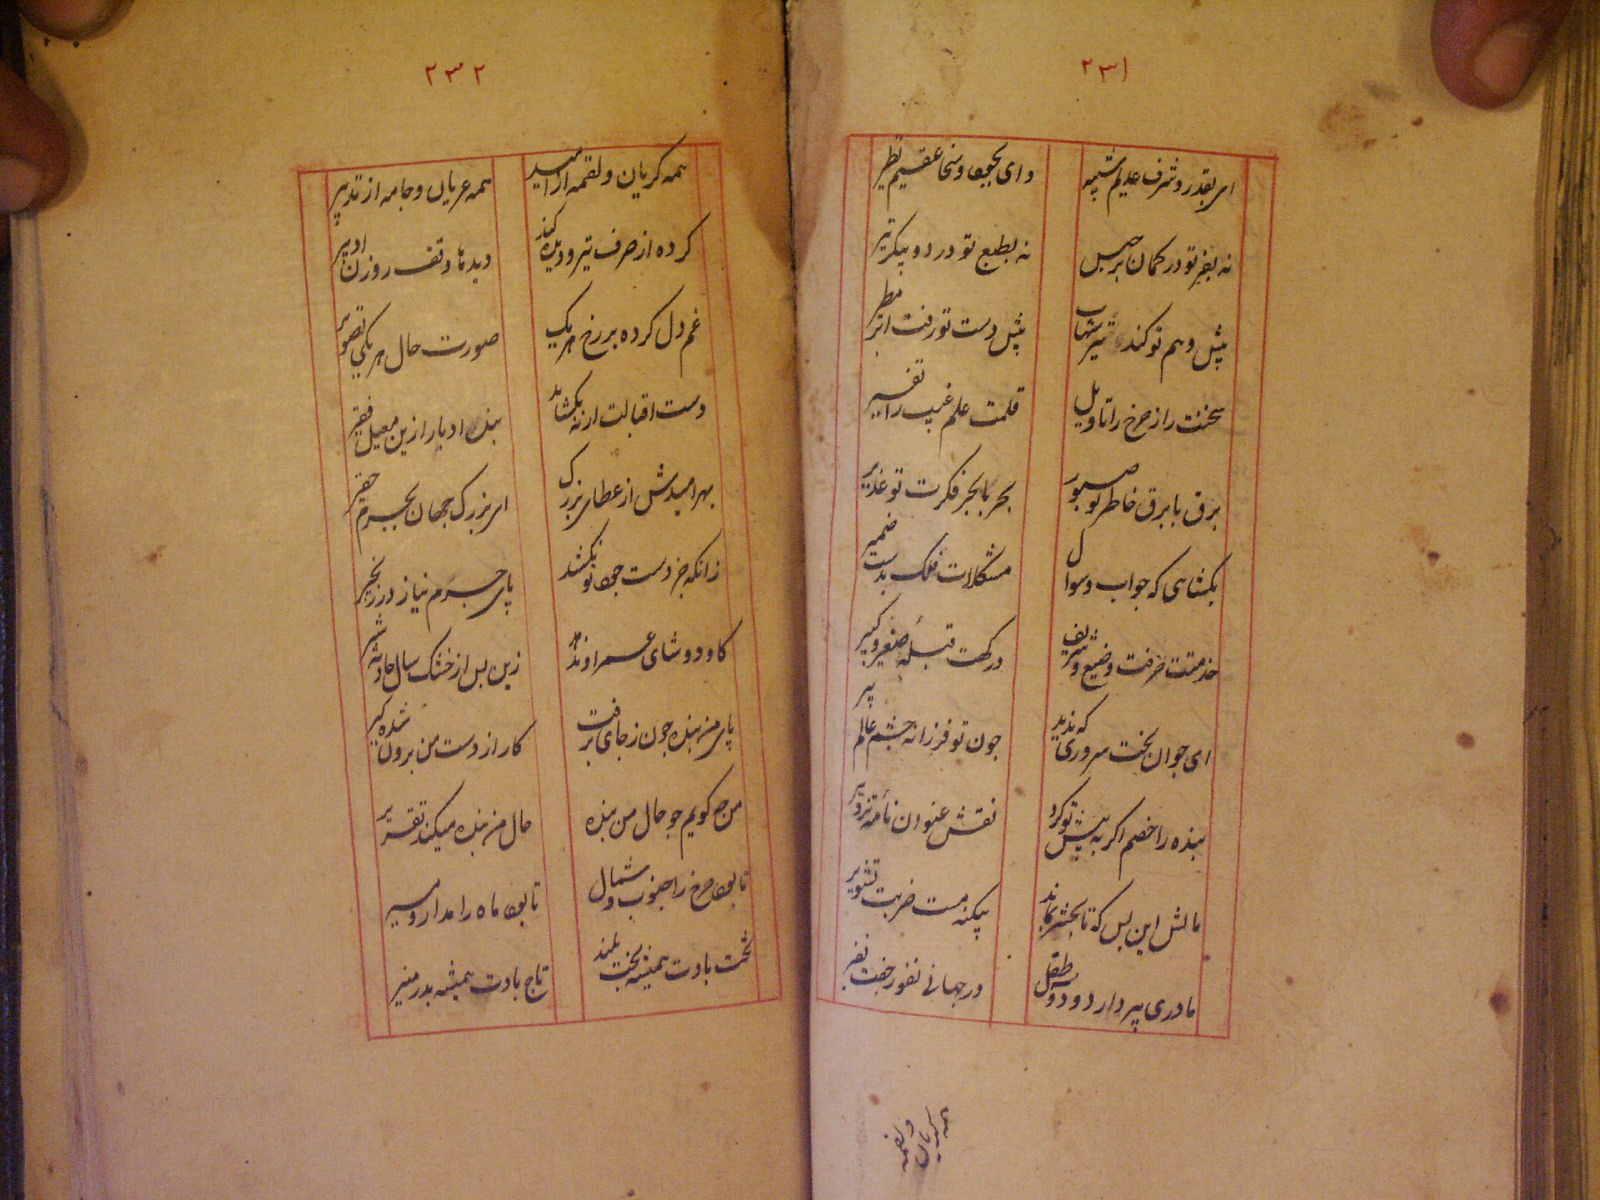 ۲۳۱
ای بقدر و شرف عدیم شبیه وای بجود و سخا عقیم نظیر
نه بقهر تو در کمان برجیس نه بطبع تو در دو پیکر تیر
پیش وهم تو کند سیر شهاب پیش دست تو رفت ابر مطیر
سخنت راز چرخ را تاویل قلمت علم غیب را تفسیر
برق با برق خاطر تو صبور بحر با بحر فکرت تو غدیر
بکشای که جواب و سوال مشکلات فلک بدست ضمیر
خدمتت حرفت وضیع و شریف درکهت قبله صغیر و کبیر
ای جوان بخت سروری که ندید چون تو فرزانه چشم عالم پیر
بنده را خصم اکر به پیش تو کرد نقش عنوان نامه تزویر
مالش این بس که تا بحشر بماند پیکنه مست ضربت تشویر
مادری پیر دارد و دو سه طفل در جهانی نفور جفت نفیر
همه کریان و لقمه
۲۳۲
همه کریان و لقمه از امید همه عریان و جامه از تدبیر
کرده از حرف تیر و دیده کنیز دیدها وقف روزن ادبیر
غم دل کرده بر رخ هر یک صورت حال هر یکی تصویر
دست اقبالت ار نه بکشاید بند ادبار ازین معیل فقیر
بهر امیدش از عطای بزرک ای بزرک جهان بجرم حقیر
زانکه جز دست جود تو نکشد پای جرم نیاز در زنجیر
کاو دوشای عمر او ندهد زین پس از خشک سال حادثه شیر
پای من بنده چون ز جای برفت کار از دست من برون شده کیر
من چه کویم چو حال من بنده حال من بنده میکند تقریر
تا بود چرخ را جنوب و شمال تا بود ماه را مدار و مسیر
تخت بادت همیشه بخت بلند تاج بادت همیشه بدر منیر